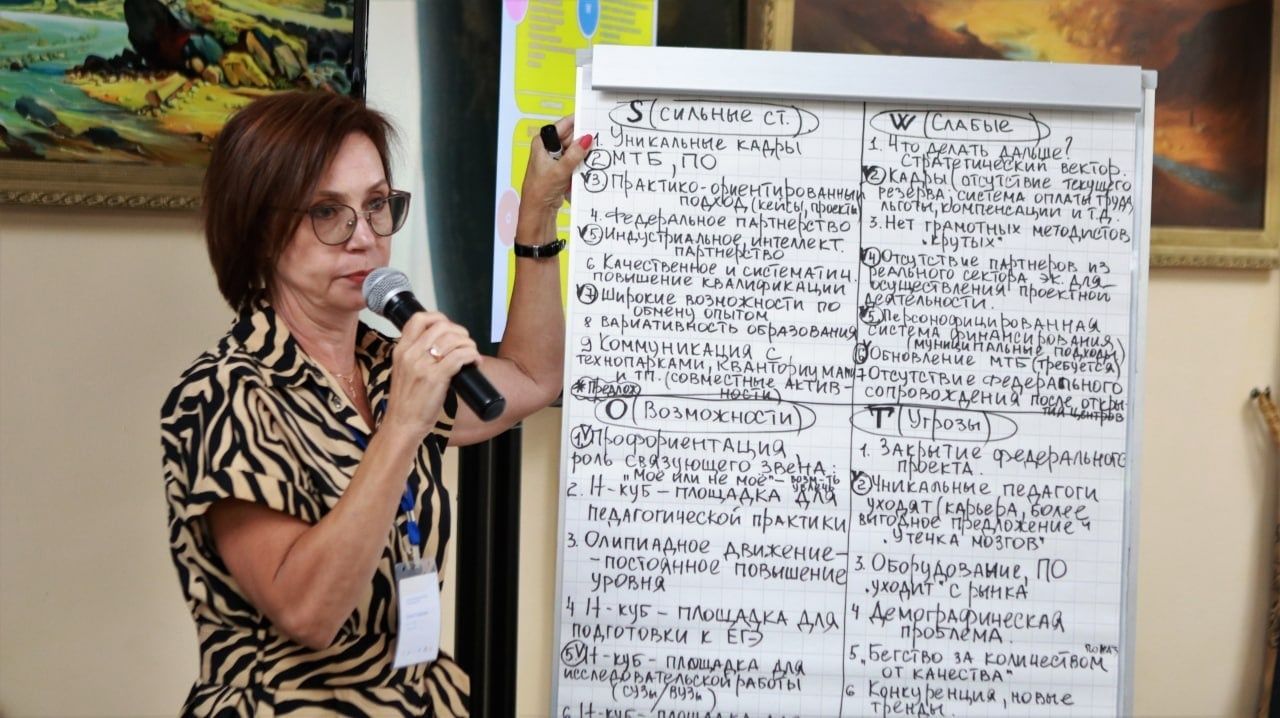 S (Сильные ст.)
1. Уникальные кадры
2 МТБ, ПО
V3 Практико-ориентированный
подход (кейсы, проекты
4. Федеральное партнерство
V5 Индустриальное, интеллект.
партнерство
6 Качественное и систематич.
повышение квалификации.
V7 Широкие возможности по
обмену опытом
8 Вариативность образования
9 Коммуникация с
технопарками, кванториумами
и тп. (совместные актив-
ности)
W (Слабые)
1. Что делать дальше?
Стратегический вектор.
V2 Кадры (отсутствие текущего
резерва; система оплаты труда,
льготы, компенсации и т.д.
3. Нет грамотных методистов
"крутых"
V4 Отсутствие партнеров из
реального сектора эк. для
осуществления проектной
деятельности.
V5 Персонофицированная
система финансирования,
(муниципальные подходы)
V6 Обновление МТБ (требуется)
7 Отсутствие федерального
сопровождения после откры-
тия центров
O (Возможности)
1V Профориентация
роль связующего звена:
"моё или не моё" – возм-ть
увлечь
2. IT-куб – площадка для
педагогической практики
3. Олипиадное движение –
- постоянное повышение
уровня
4 IT-куб – площадка для
подготовки к ЕГЭ
5V IT-куб – площадка для
исследовательской работы
(СУЗы/ВУЗы)
6 IT-куб – площадка для
T (Угрозы)
1. Закрытие федерального
проекта.
V2 Уникальные педагоги
уходят (карьера, более
выгодное предложение и
"утечка мозгов"
3. Оборудование, ПО
"уходит" с рынка
4 Демографическая
проблема.
5. "Бегство за количеством
от качества"
6 Конкуренция, новые
тренды.